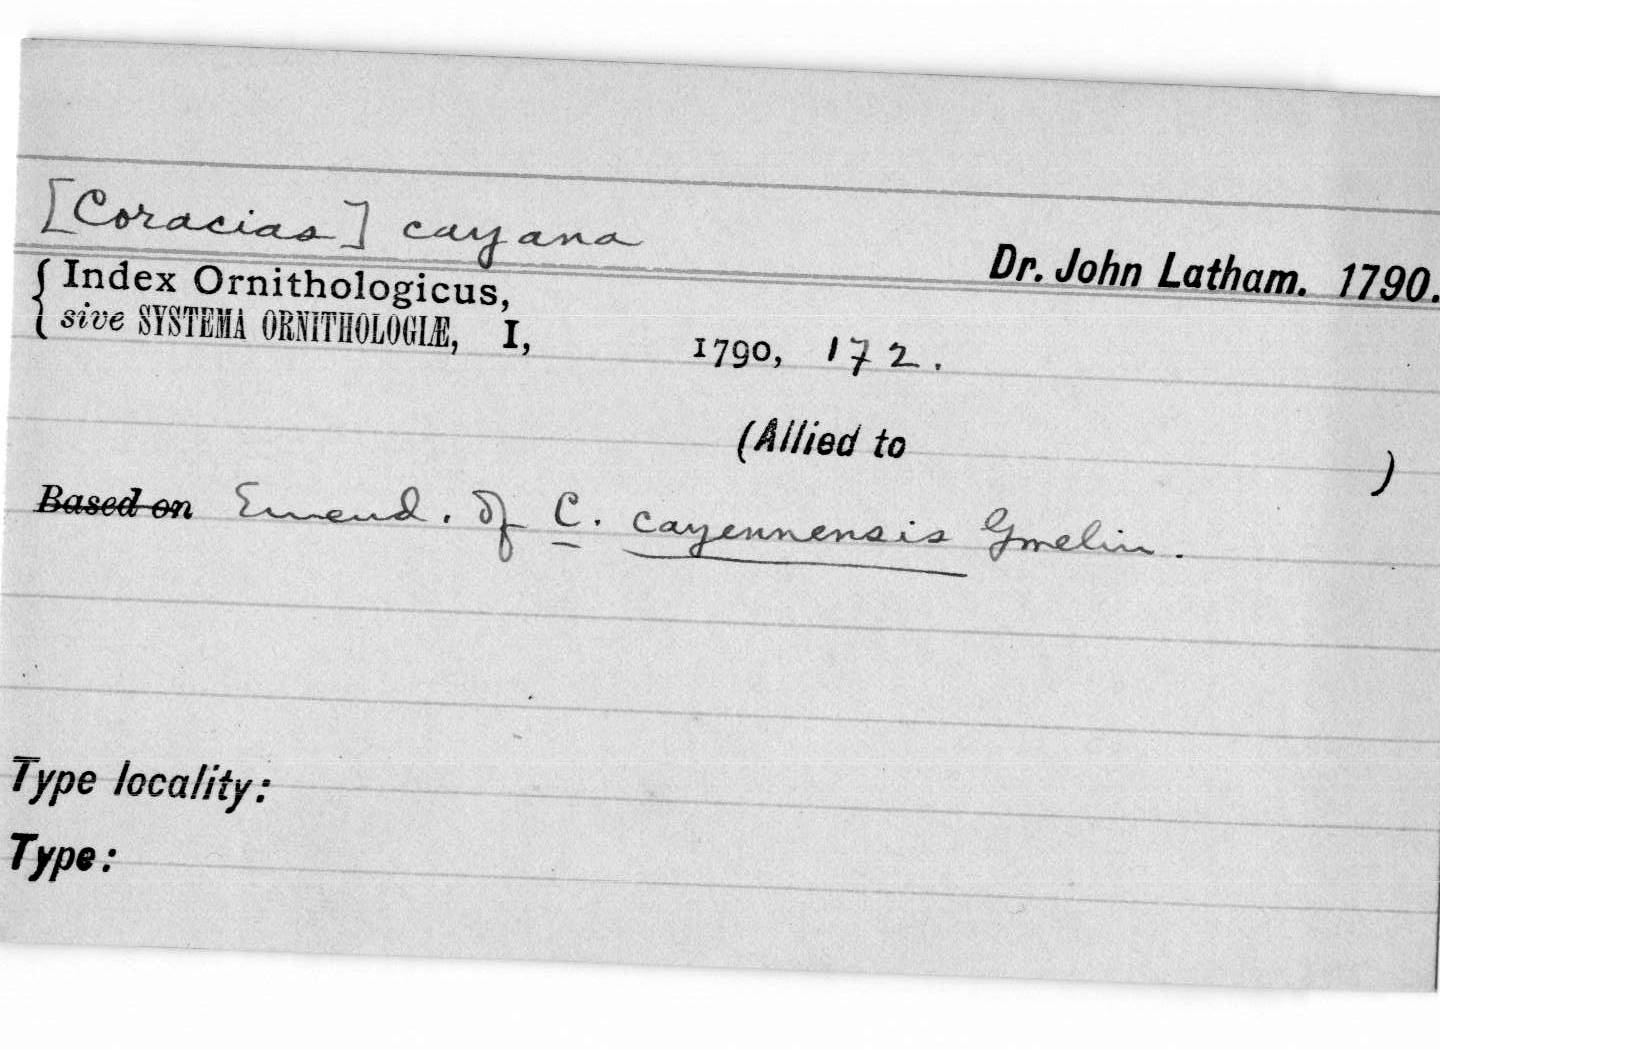 [Coracias] cayana
Dr. John Latham. 1790.
{ Index Ornithologicus,
sive SYSTEMA ORNITHOLOGIÆ, I, 1790, 172.
(Allied to )
Based on Emend. of C. cayennensis Gmelin.
Type locality:
Type: